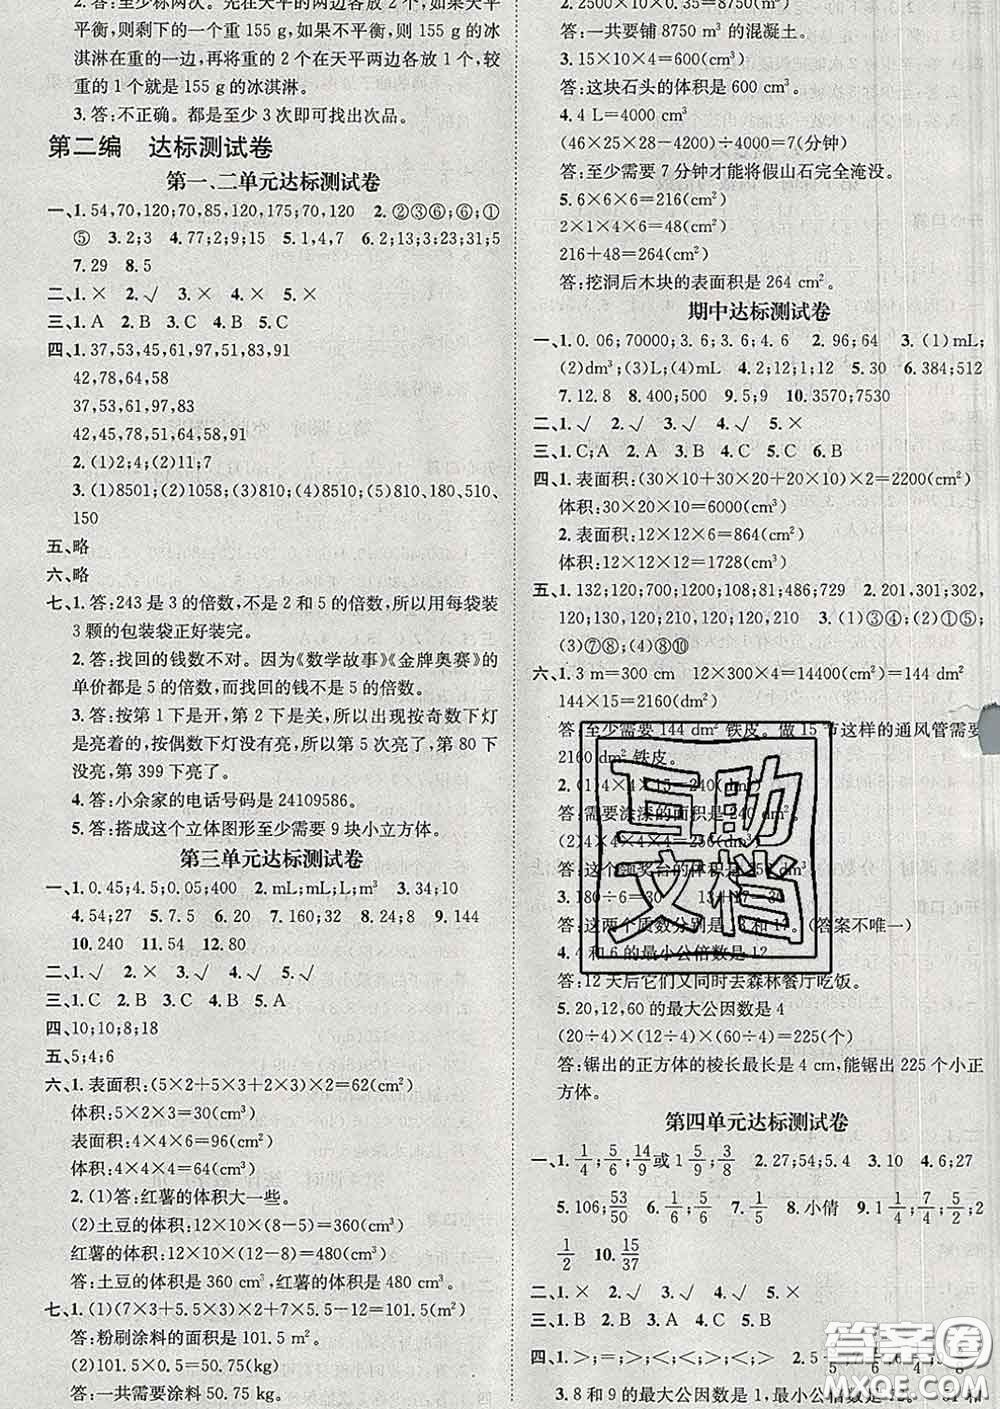 2. 答:至少称两次。先在天平的两边各放 2 个,如果天平平
衡,则剩下的一个重 155 g,如果不平衡,则重 155 g 的冰
淇淋在重的一边,再将重的 2 个在天平两边各放一个,较
重的 1 个就是 155 g 的冰淇淋。
3. 答:不正确。都是至少 3 次即可找出次品。
第二编 达标测试卷
第一、二单元达标测试卷
一、1. 54,70,120;70,85,120,175;70,120 2. ②③⑥;⑥;①
⑤ 3. 2;3 4. 77;2;9;15 5. 1,4,7 6. 2;13;3;23;31;5
7. 29 8. 5
二、1. × 2. √ 3. × 4. × 5. ×
三、1. A 2. B 3. B 4. B 5. C
四、1. 37,53,45,61,97,51,83,91
42,78,58,64
37,53,61,97,83
42,45,78,51,57,64,58,91
2. (1)2;4;(2)11;7
3. (1)8501;(2)1058;(3)8510;(4)5801;(5)810,180,510、
150
五、略
六、略
七、1. 答:243 是 3 的倍数,不是 2 和 5 的倍数,所以用每袋装
3 颗的包装袋正好装完。
2. 答:找回的钱数不对。因为《数学故事》《金牌奥赛》的
单价都是 5 的倍数,而找回的钱不是 5 的倍数。
3. 答:按第 1 下是开,第 2 下是关,所以出现按奇数下灯
是亮着的,按偶数下灯没有亮,所以第 5 次亮了,第 80 下
没亮,第 399 下亮了。
4. 答:小余家的电话号码是 24109586。
5. 答:搭成这个立体图形至少需要 9 块小立方体。
第三单元达标测试卷
一、1. 0.45;4.5;0.05;400 2. mL;mL;L 3. 34;10
4. 54;27 5. 7 6. 20 7. 160;32 8. 24;8 9. 144
10. 240 11. 54 12. 80
二、1. √ 2. × 3. √ 4. √ 5. ×
三、1. C 2. B 3. B 4. B 5. A
四、10;10;8;18
五、5;4;6
六、1. 表面积:(5×2+5×3+2×3)×2=62(cm²)
体积:5×2×3=30(cm³)
表面积:4×4×6=96(cm²)
体积:4×4×4=64(cm³)
2. (1)答:红薯的体积大一些。
(2)土豆的体积:12×10×(8-5)=360(cm³)
红薯的体积:12×10×(12-8)=480(cm³)
答:土豆的体积是 360 cm³,红薯的体积是 480 cm³。
七、1. (1)(7×3+5.5×3)×2+7×5.5-12=101.5(m²)
答:粉刷涂料的面积是 101.5 m²。
(2)101.5×0.5=50.75(kg)
答:一共需要涂料 50.75 kg。
2. 2500×10×0.35=8750(m³)
答:一共要铺 8750 m³ 的混凝土。
3. 15×10×4=600(cm³)
答:这块石头的体积是 600 cm³。
4. 4 L=4000 cm³
(46×25×28-4200)÷4000=7(分钟)
答:至少需要 7 分钟才能将假山石完全淹没。
5. 6×6×6=216(cm²)
2×1×4×6=48(cm²)
216+48=264(cm²)
答:挖洞后木块的表面积是 264 cm²。
期中达标测试卷
一、1. 0.06;70000;3.6;3.6;4.6 2. 96;64 3. (1)mL;
(2)dm³;(3)L;(4)mL 4. 2;12;1;12 5. 4 6. 384;512
7. 12.8 8. 400;500 9. 5;9 10. 3570;7530
二、1. √ 2. √ 3. √ 4. √ 5. ×
三、1. C;A 2. A 3. B 4. C 5. C 6. B
四、1. 表面积:(30×10+30×20+20×10)×2=2200(cm²)
体积:30×20×10=6000(cm³)
2. 表面积:12×12×6=864(cm²)
体积:12×12×12=1728(cm³)
五、1. 132;120;700,1200;108,81;486,729 2. 201,301;30,
120;130,210;120,210 3. (1)③④;(2)①⑤⑥;
(3)⑦⑧⑩
六、1. 3 m=300 cm 12×300×4=14400(cm²)=144 dm²
144×15=2160(dm²)
答:至少需要 144 dm² 铁皮。做 15 节这样的通风管需要
2160 dm² 铁皮。
2. (1)4×4×15=240(dm²)
答:需要涂漆的面积是 240 dm²。
答:这个领奖台的体积是
3. 180÷6=30 13+17=30
答:这两个质数分别是 13 和 17。(答案不唯一)
4. 4 和 6 的最小公倍数是 12。
答:12 天后它们又同时去森林餐厅吃饭。
5. 20,12,60 的最大公因数是 4
(20÷4)×(12÷4)×(60÷4)=225(个)
答:锯出的正方体的棱长最长是 4 cm,能锯出 225 个小正
方体。
第四单元达标测试卷
一、1. 1/4;5/5;14/9或1 5/9;3/8 2. 27;54;5 3. 10 4. 6;27
5. 106;53/50 6. 1/6;5/6 7. 5/12 8. 小倩 9. 1 1/4;7/4;5/4;2
1/2 10. 15/37
二、1. √ 2. × 3. √ 4. × 5. ×
三、1. B 2. B 3. B 4. A 5. C
四、1. >;=;<;>;>;<;<;>
3. 8 和 9 的最大公因数是 1,最小公倍数是
互助文档
答案圈